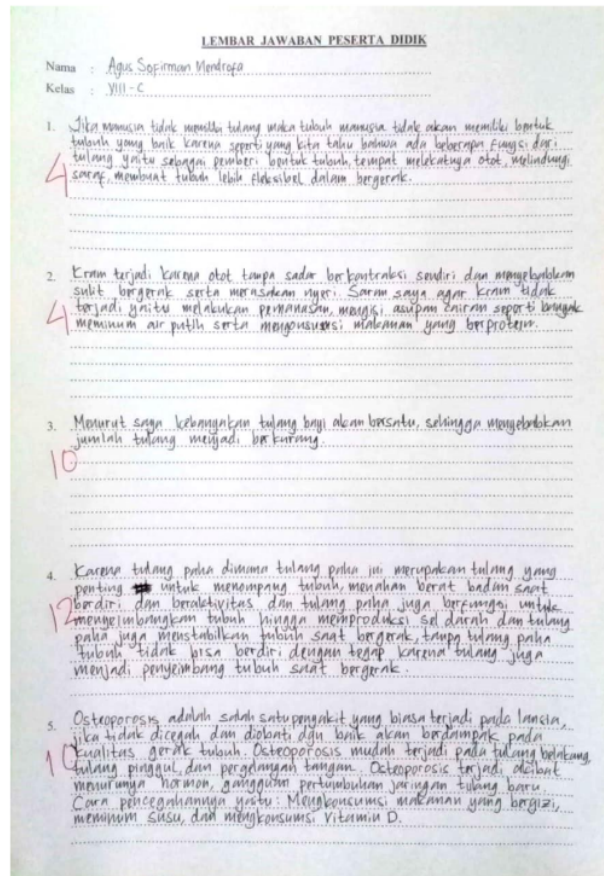 LEMBAR JAWABAN PESERTA DIDIK
Nama : Agus Sofirman Mendrofa
Kelas : VIII - C
1. Jika manusia tidak memiliki tulang maka tubuh manusia tidak akan memiliki bentuk
tubuh yang baik karena seperti yang kita tahu bahwa ada beberapa fungsi dari
tulang yaitu sebagai pemberi bentuk tubuh, tempat melekatnya otot, melindungi
saraf, membuat tubuh lebih fleksibel dalam bergerak.
4
2. Kram terjadi karena otot tanpa sadar berkontraksi sendiri dan menyebabkan
sulit bergerak serta merasakan nyeri. Saran saya agar kram tidak
terjadi yaitu melakukan pemanasan, mengisi asupan cairan seperti banyak
meminum air putih serta mengonsumsi makanan yang berprotein.
4
3. Menurut saya kebanyakan tulang bayi akan bersatu, sehingga menyebabkan
jumlah tulang menjadi berkurang.
10
4. Karena tulang paha dimana tulang paha ini merupakan tulang yang
penting untuk menompang tubuh, menahan berat badan saat
berdiri dan beraktivitas dan tulang paha juga berfungsi untuk
menyeimbangkan tubuh hingga memproduksi sel darah dan tulang
paha juga menstabilkan tubuh saat bergerak, tanpa tulang paha
tubuh tidak bisa berdiri dengan tegap karena tulang juga
menjadi penyeimbang tubuh saat bergerak.
12
5. Osteoporosis adalah salah satu penyakit yang biasa terjadi pada lansia,
jika tidak dicegah dan diobati dgn baik akan berdampak pada
kualitas gerak tubuh. Osteoporosis mudah terjadi pada tulang belakang,
tulang pinggul, dan pergelangan tangan. Osteoporosis terjadi akibat
menurunya hormon, gangguan pertumbuhan jaringan tulang baru.
Cara pencegahannya yaitu: Mengkonsumsi makanan yang bergizi,
meminum susu, dan mengkonsumsi Vitamin D.
10